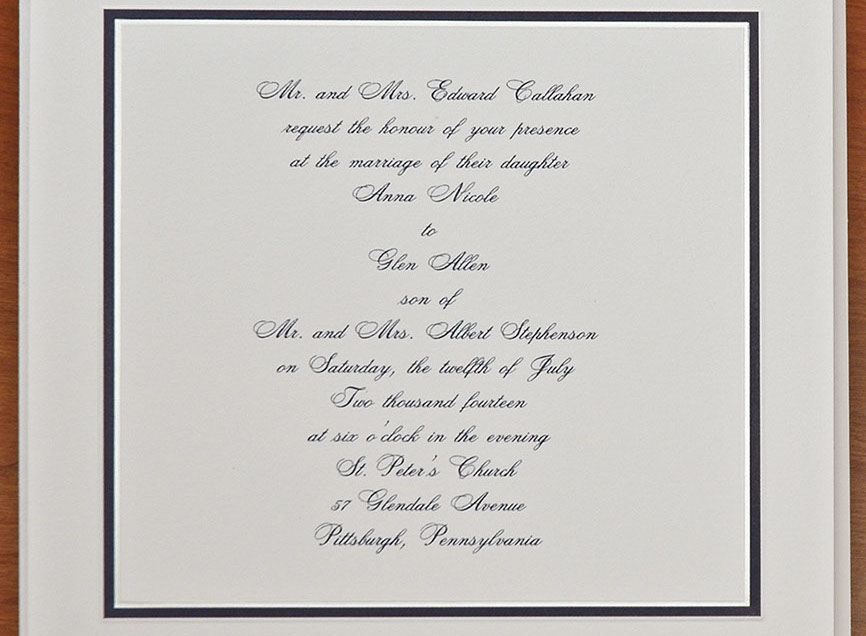 Mr. and Mrs. Edward Callahan
request the honour of your presence
at the marriage of their daughter
Anna Nicole
to
Glen Allen
son of
Mr. and Mrs. Albert Stephenson
on Saturday, the twelfth of July
Two thousand fourteen
at six o'clock in the evening
St. Peter's Church
57 Glendale Avenue
Pittsburgh, Pennsylvania